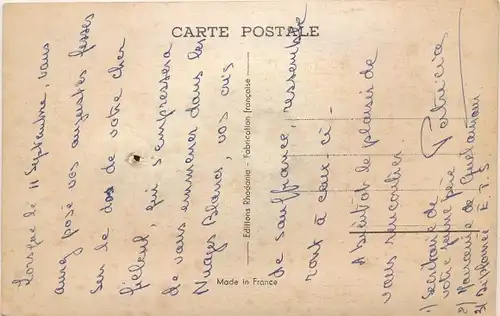 CARTE POSTALE
Lorsque le 11 Septembre, vous
aurez posé vos augustes fesses
sur le dos de votre cher
filleul, qui s'empressera
de vous emmener dans les
Nuages Blancs, vos cris
de souffrance, ressemble
ront à ceux-ci.
A bientôt le plaisir de
vous rencontrer.
Patricia
1) Secrétaire de
votre jeune père
2) Marraine de
3) Diplômée E.P.S
Editions Rhodania - Fabrication française
Made in France